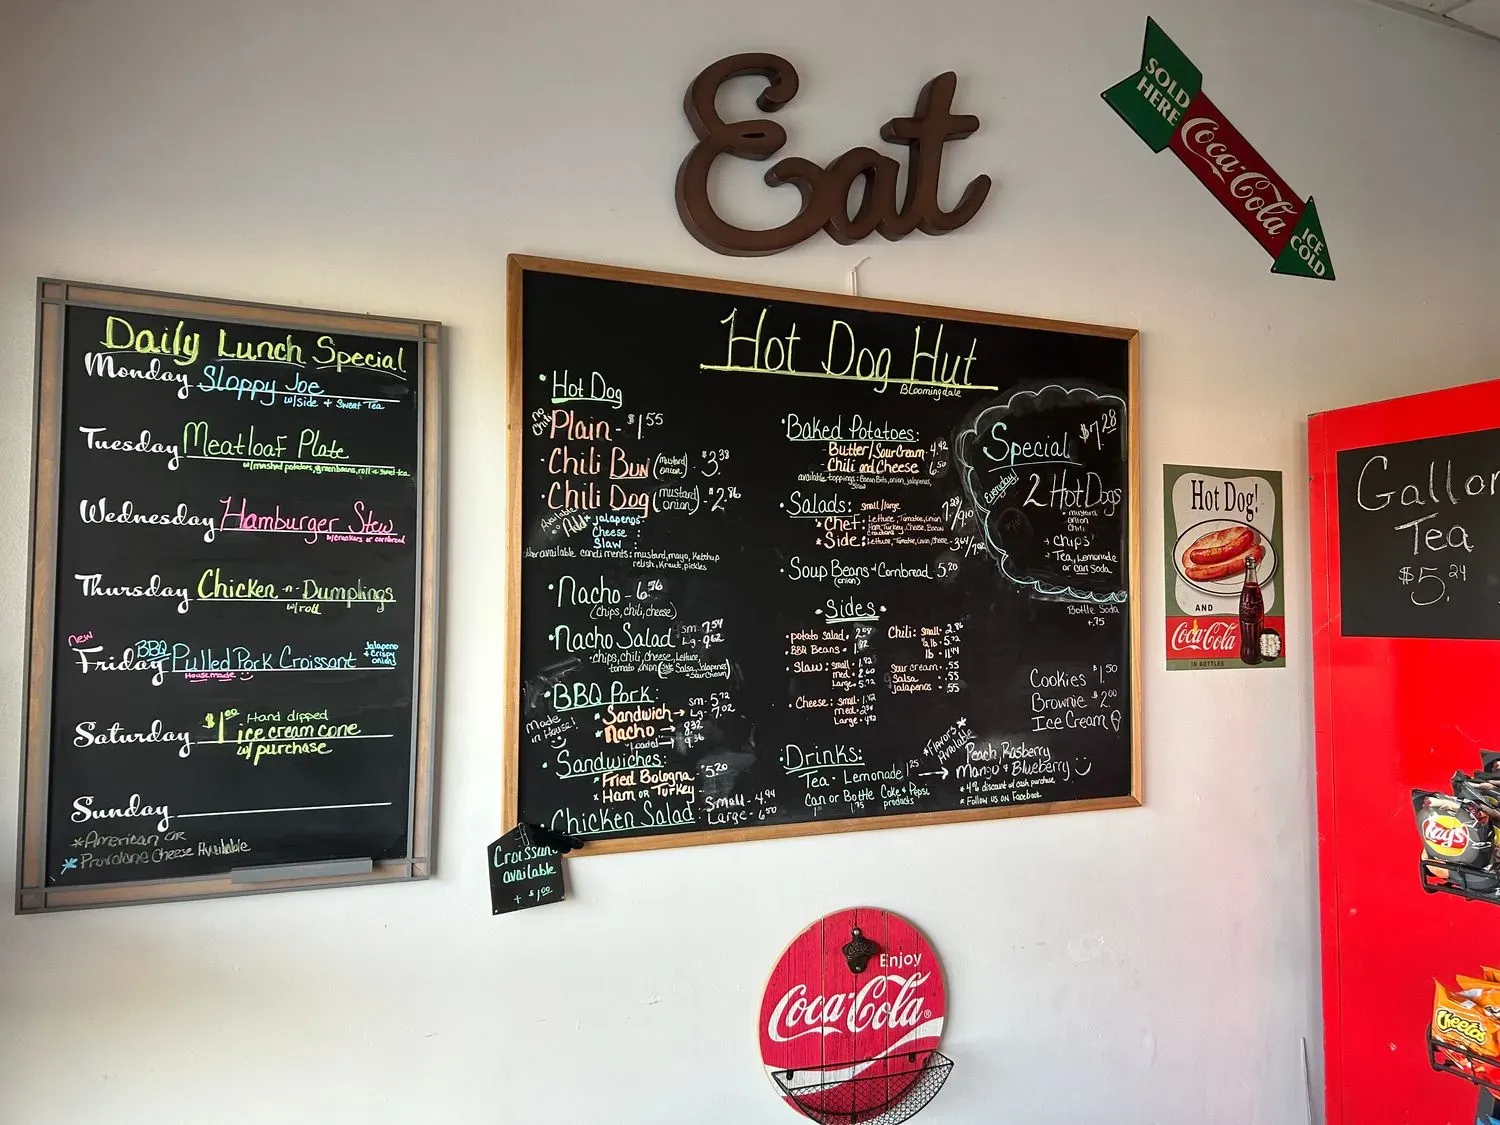 Eat
SOLD HERE
Coca-Cola
ICE COLD
Daily Lunch Special
Monday Sloppy Joe
w/side + Sweat Tea
Tuesday Meatloaf Plate
w/mashed potatoes, green beans, roll + sweet tea
Wednesday Hamburger Stew
w/crackers or cornbread
Thursday Chicken -n- Dumplings
w/roll
new
Friday BBQ Pulled Pork Croissant
Jalapeno + Crispy onions
Housemade
Saturday $1.00 Hand dipped
ice cream cone
w/ purchase
Sunday
*American or
*Provolone Cheese Available
Hot Dog Hut
Bloomingdale
• Hot Dog
no chili
Plain - $1.55
• Chili Bun (mustard onion) - $3.38
• Chili Dog (mustard onion) - $2.86
Available Add: jalapenos
Cheese
Slaw
available condiments: mustard, mayo, Ketchup
relish, Kraut, pickles
• Nacho - 6.76
(chips, chili, cheese)
• Nacho Salad sm - 7.54
Lg -
- chips, chili, cheese, Lettuce,
tomato, onion (side Salsa, Jalapenos
+ Sour Cream)
• BBQ Pork:
Made in House!
* Sandwich → sm - 5.72
Lg - 7.02
* Nacho → 8.32
Loaded → 9.36
• Sandwiches:
* Fried Bologna - 5.20
* Ham or Turkey
• Chicken Salad: Small - 4.94
Large - 6.50
Croissant
available
+ $1.00
• Baked Potatoes:
- Butter/Sour Cream - 4.42
- Chili and Cheese 6.50
available toppings: Bacon Bits, onion, jalapenos,
slaw
• Salads: small/large
* Chef: Lettuce, Tomatoe, onion
Ham, Turkey, Cheese, Bacon
croutons
7.28/9.10
* Side: Lettuce, Tomatoe, onion, Cheese - 3.64/
• Soup Beans + Cornbread 5.20
(onion)
• Sides •
• potato salad • 2.08
• BBQ Beans •
• Slaw: small • 1.82
med •
Large • 5.72
• Cheese: small • 1.42
med •
Large •
Chili: small - 2.86
1/2 lb - 5.72
lb - 11.44
Sour cream • .55
Salsa • .55
jalapenos • .55
• Drinks:
Tea - Lemonade 1.25 →
*Flavors Available*
Peach, Rasberry
Mango + Blueberry
Can or Bottle Coke + Pepsi
products
1.75
* 4% discount w/ cash purchase
* Follow us on Facebook
Special $7.28
Everyday!
2 Hot Dogs
• mustard
onion
Chili
+ Chips
+ Tea, Lemonade
or can Soda
Bottle Soda
+.75
Cookies $1.50
Brownie $2.00
Ice Cream
Hot Dog!
AND
Coca-Cola
IN BOTTLES
Gallon
Tea
$5.24
Lay's
Cheetos
Enjoy
Coca-Cola®